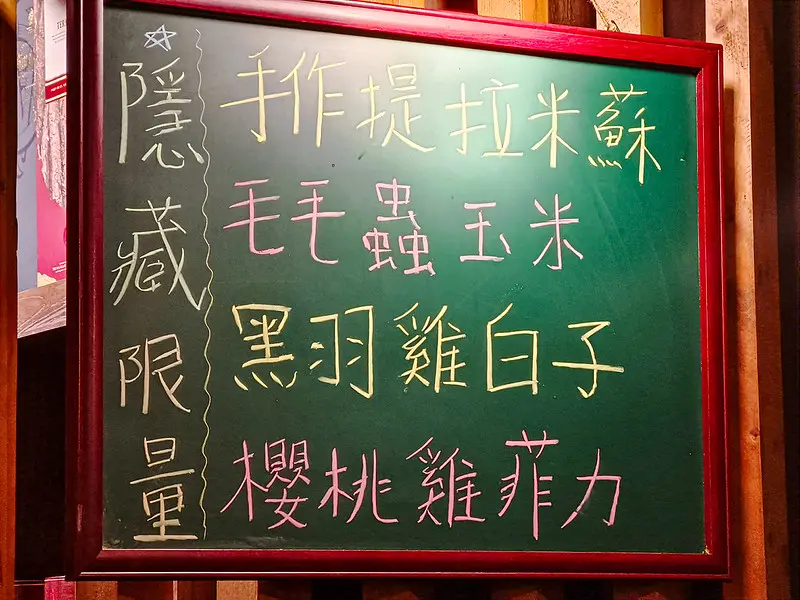 隱藏限量
手作提拉米蘇
毛毛蟲玉米
黑羽雞白子
櫻桃雞菲力